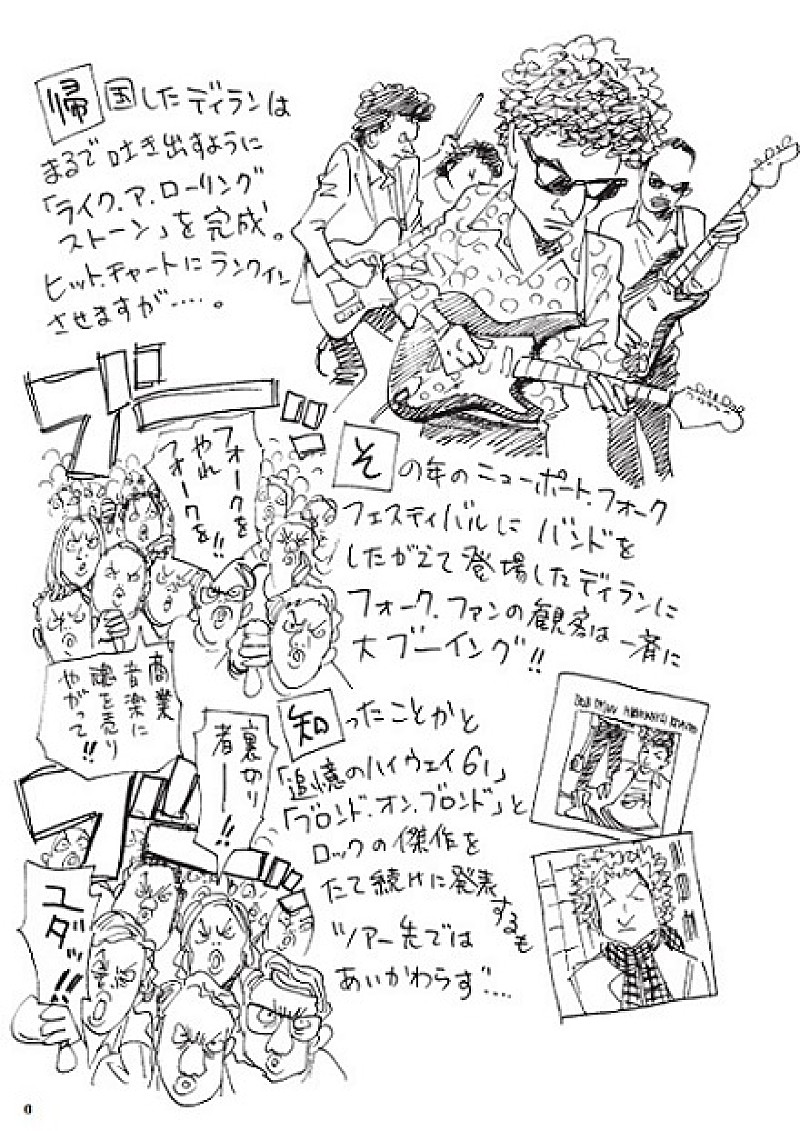 帰国したディランは
まるで吐き出すように
「ライク.ア.ローリング
ストーン」を完成。
ヒット.チャートにランクイン
させますが……。
ブーッ
フォークを
やれ
フォークを!!
その年のニューポート.フォーク
フェスティバルに バンドを
したがえて登場したディランに
フォーク.ファンの観客は一斉に
大ブーイング!!
商業
音楽に
魂を売り
やがって!!
知ったことかと
「追憶のハイウェイ61」
「ブロンド.オン.ブロンド」と
ロックの傑作を
たて続けに発表
するも
ツアー先では
あいかわらず…
裏切り
者ー!!
ブーッ
ユダッ!!
0